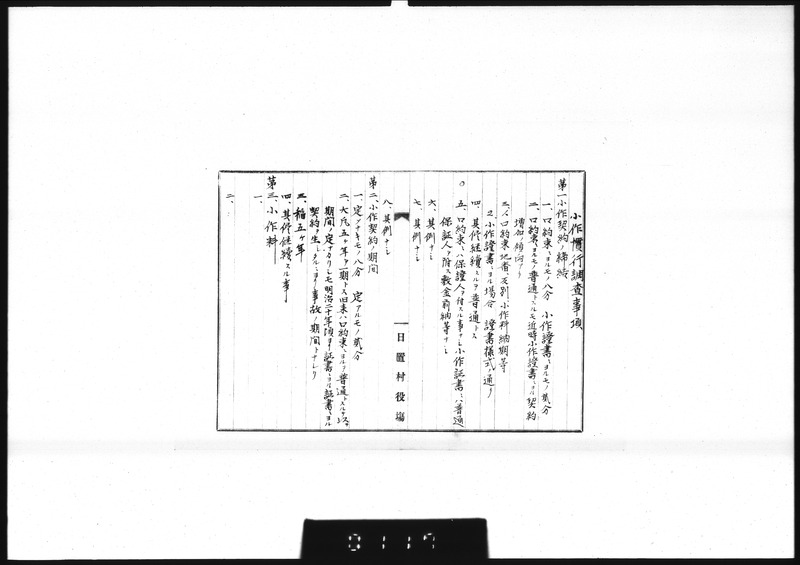 小作慣行調査事項
第一、小作契約ノ締結
一、口約束ニヨルモノ八分 小作證書ニヨルモノ貳分
二、口約束ニヨルモノ普通トスルモ近時小作證書ニヨル契約
増加ノ傾向アリ
三、1口約束 地番、反別、小作料納期等
2小作證書ニヨル場合 證書様式ノ通リ
四、其侭継續スルヲ普通トス
五、口約束ハ保證人ヲ付スル事ナシ小作証書ニハ普通
保証人ヲ附ス敷金前納等ナシ
六、其例ナシ
七、其例ナシ
日置村役場
八、其例ナシ
第二、小作契約ノ期間
一、定メナキモノ八分 定アルモノ貳分
二、大凡五ヶ年ヲ一期トス旧来ハ口約束ニヨルヲ普通トスルヲ以テ
期間ノ定ナカリシモ明治二十年頃ヨリ証書ニヨル
契約ヲ生シタルニヨリ事故ノ期間トナレリ
三、稲五ヶ年
四、其侭継續スル事
第三、小作料
一、
二、
0117